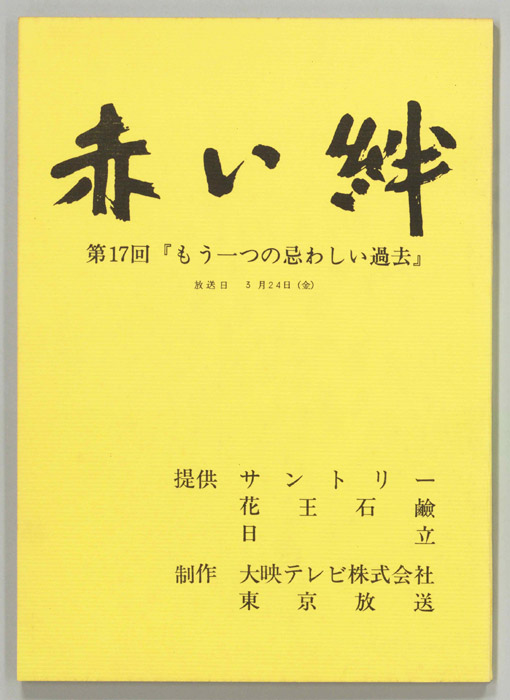 赤い絆
第17回『もう一つの忌わしい過去』
放送日 3月24日(金)
提供 サントリー
花王石鹸
日立
制作 大映テレビ株式会社
東京放送